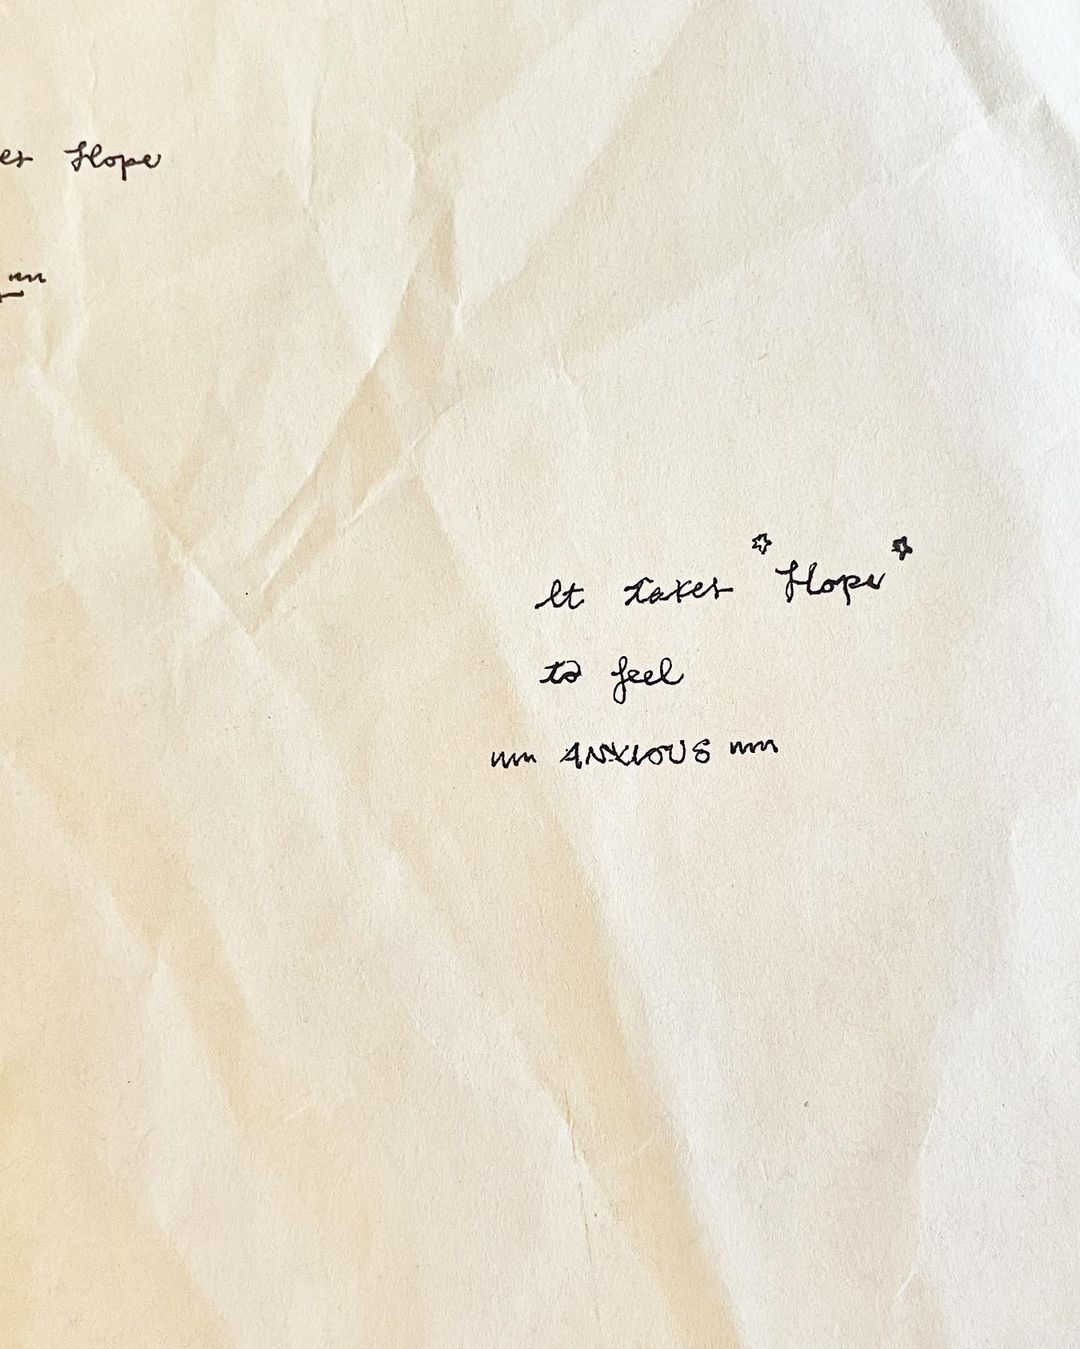 Hope
It takes "Hope"
to feel
ANXIOUS